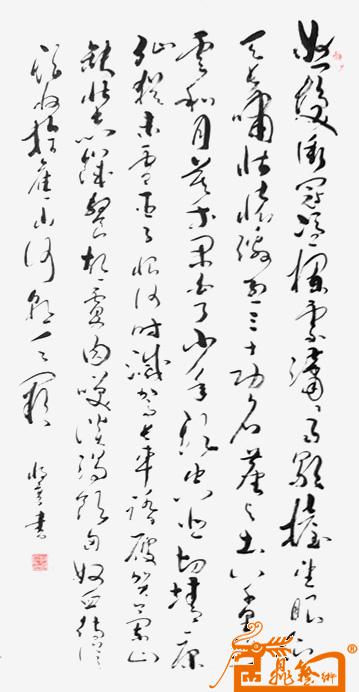 怒髮衝冠憑欄處瀟瀟雨歇擡望眼仰
天長嘯壯懷激烈三十功名塵與土八千里路
雲和月莫等閑白了少年頭空悲切靖康
恥猶未雪臣子恨何時滅駕長車踏破賀蘭山
缺壯志飢餐胡虜肉笑談渴飲匈奴血待從
頭收拾舊山河朝天闕
書